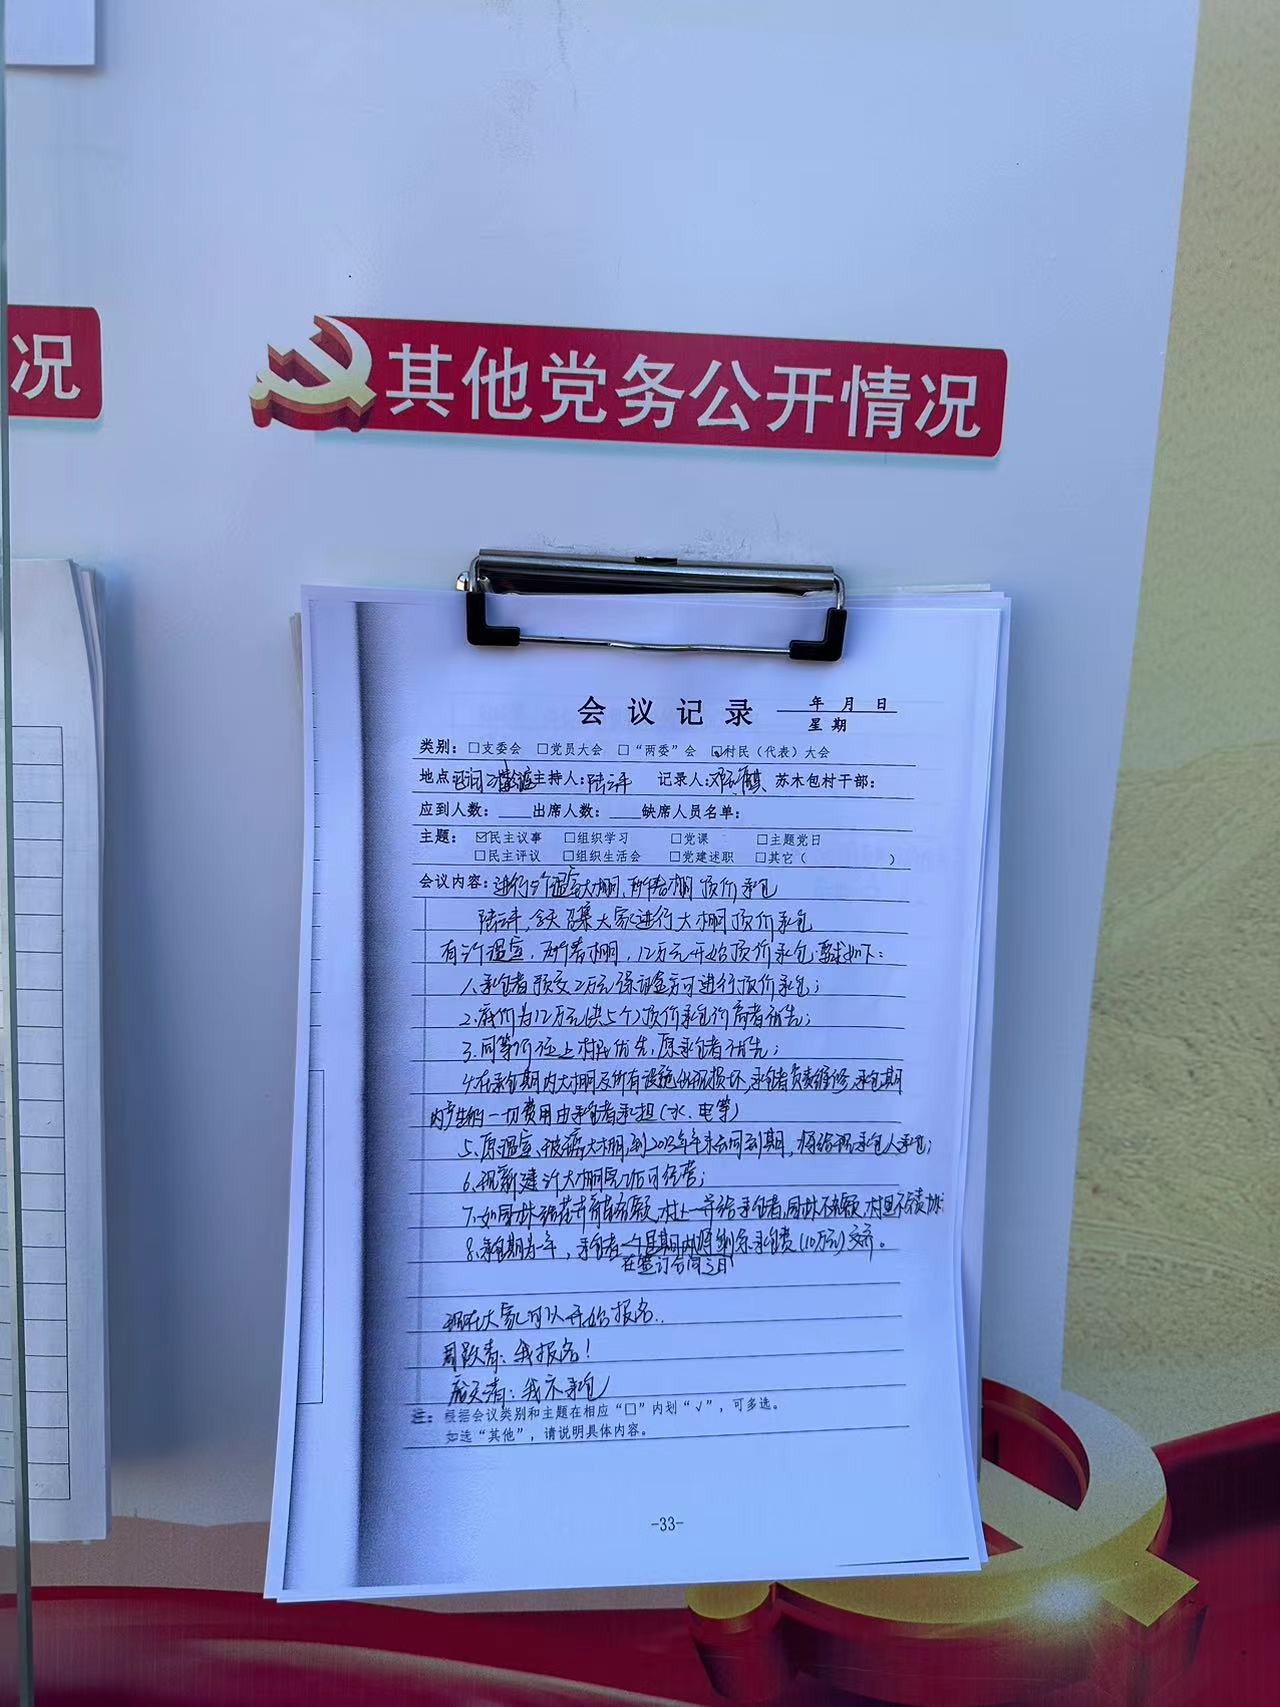 况
其他党务公开情况
会议记录 年 月 日
星期
类别：□支委会 □党员大会 □“两委”会 ☑村民（代表）大会
地点 主持人：陆 平 记录人： 苏木包村干部：
应到人数：____出席人数：____缺席人员名单：
主题： ☑民主议事 □组织学习 □党课 □主题党日
□民主评议 □组织生活会 □党建述职 □其它（ ）
会议内容：进行 个温室大棚、 棚顶价承包
陆 平，今天召集大家进行大棚顶价承包
有 个温室， 棚，12万元开始顶价承包，要求如下：
1、承包者预交2万元保证金方可进行顶价承包；
2、底价为12万元（共5个）顶价承包价高者优先；
3、同等价位上村民优先，原承包者优先；
4、在承包期内大棚及所有设施出现损坏，承包者负责维修，承包期
内产生的一切费用由承包者承担（水、电等）
5、原温室、 大棚，到2023年年末合同到期，将给 承包人承包；
6、 新建 大棚完工后可经营；
7、如 ，村上一并给承包者， ，村里不负责
8、承包期为一年，承包者一个星期内将剩余承包费（10万元）交齐。
在签订合同之日
现在大家可以开始报名..
青：我报名！
清：我不承包
注：根据会议类别和主题在相应“□”内划“√”，可多选。
如选“其他”，请说明具体内容。
-33-